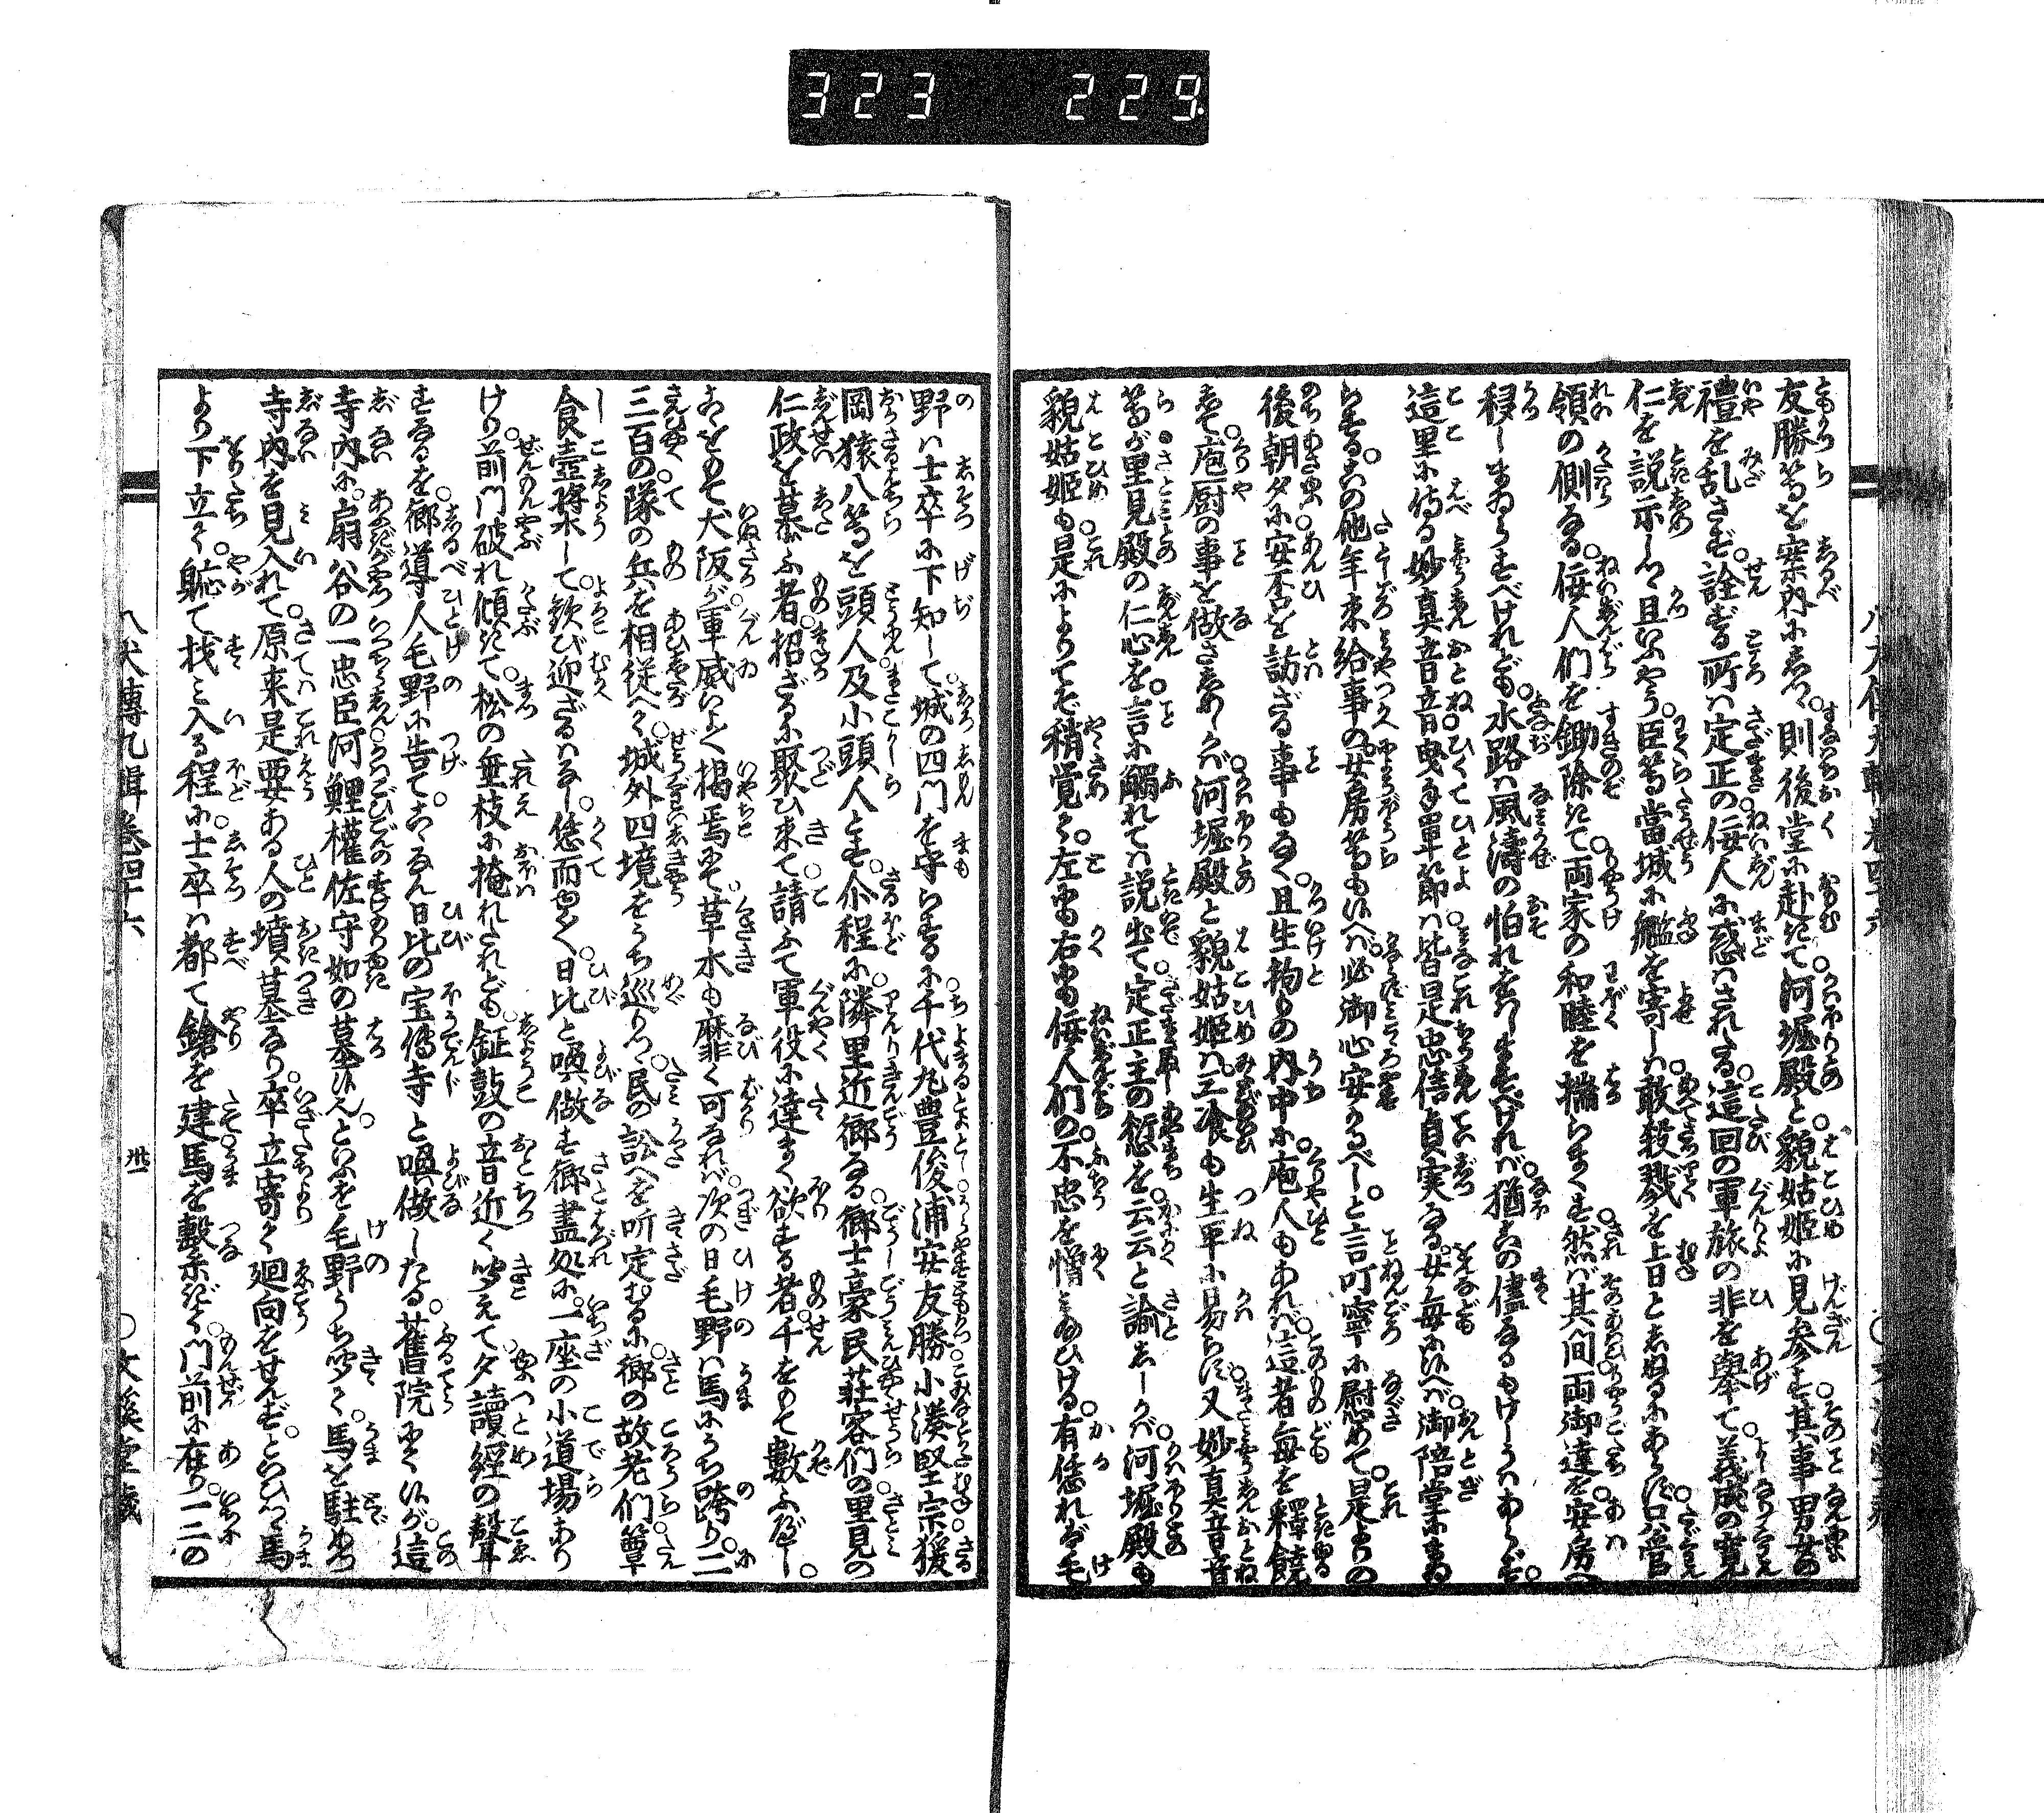 323 229
友勝等を案内にしつ。則後堂に赴きて河堀殿と貌姑姫に見参す。其事男女の
禮を乱さず。詮ずる所は定正の佞人に惑はされたる。這回の軍旅の非を挙て。義成の寛
仁を説示しつ。且いふやう。臣等當城に艦を寄しは敢殺戮を上日としぬるにあらず。只管
領の側なる。佞人們を鋤除きて。両家の和睦を揣らまくす。然ば其間両御達を。安房へ
移しまゐらすべけれども。水路は風濤の怕れをはしますべければ。猶この儘なるもけしうはあらず。
這里に侍る妙真音音曳手單節は。皆是忠信貞実なる。女毎に候へば。御陪堂にまゐ
らする。この他年来給事の。女房等も候へば。必御心安かるべし。と言叮寧に慰めて。是よりの
後朝夕に安否を訪ざる事もなく。且生拘の内中に。庖人もあれば。這者毎を釋饒
して。庖厨の事を做さしめしかば。河堀殿と貌姑姫は。三飡も生平に易らず。又妙真音音
等が里見殿の仁心を。言に觸れては説出て。定正主の愆を云云と諭ししかば。河堀殿も
貌姑姫も是によりてぞ稍覚て。左にも右にも佞人們の不忠を憎みたまひける。有恁れば毛
野は士卒に下知して。城の四門を守らするに。千代丸豊俊浦安友勝小湊堅宗猨
岡猿八等を頭人及小頭人とす。尒程に。隣里近郷なる。郷士豪民荘客們の里見の
仁政を慕ふ者。招ざるに聚ひ来て。請ふて軍役に達まく欲する者。千をもて數ふべし。
よをもて犬阪が軍威いよ〱掲焉にて。草木も靡く可なれば。次の日毛野は馬にうち跨り。二
三百の隊の兵を相従へて。城外四境をうち巡りつ。民の訟へを听定むるに。郷の故老們簟
食壺漿して。歓び迎ざるはなし。恁而思はく。日比と喚做す郷盡処に。一座の小道場あり
けり。前門破れ傾きて。松の垂枝に掩れたれども。鉦鼓の音近く聞えて。夕讀經の聲
すなるを。郷導人毛野に告て。こはなん日比の宝傳寺と喚做したる。舊院にて候が。這
寺内に。扇谷の一忠臣河鯉權佐守如の墓候へ。といふを毛野うち聞て。馬を駐めつ
寺内を見入れて。原来是要ある人の墳墓なり。卒立寄て廻向をせんず。といひつゝ馬
より下立て。軈て找み入る程に。士卒は都て鎗を建馬を繋ぎて。門前に在り。二三の
八犬傳九輯巻四十六
卅一
○文溪堂藏